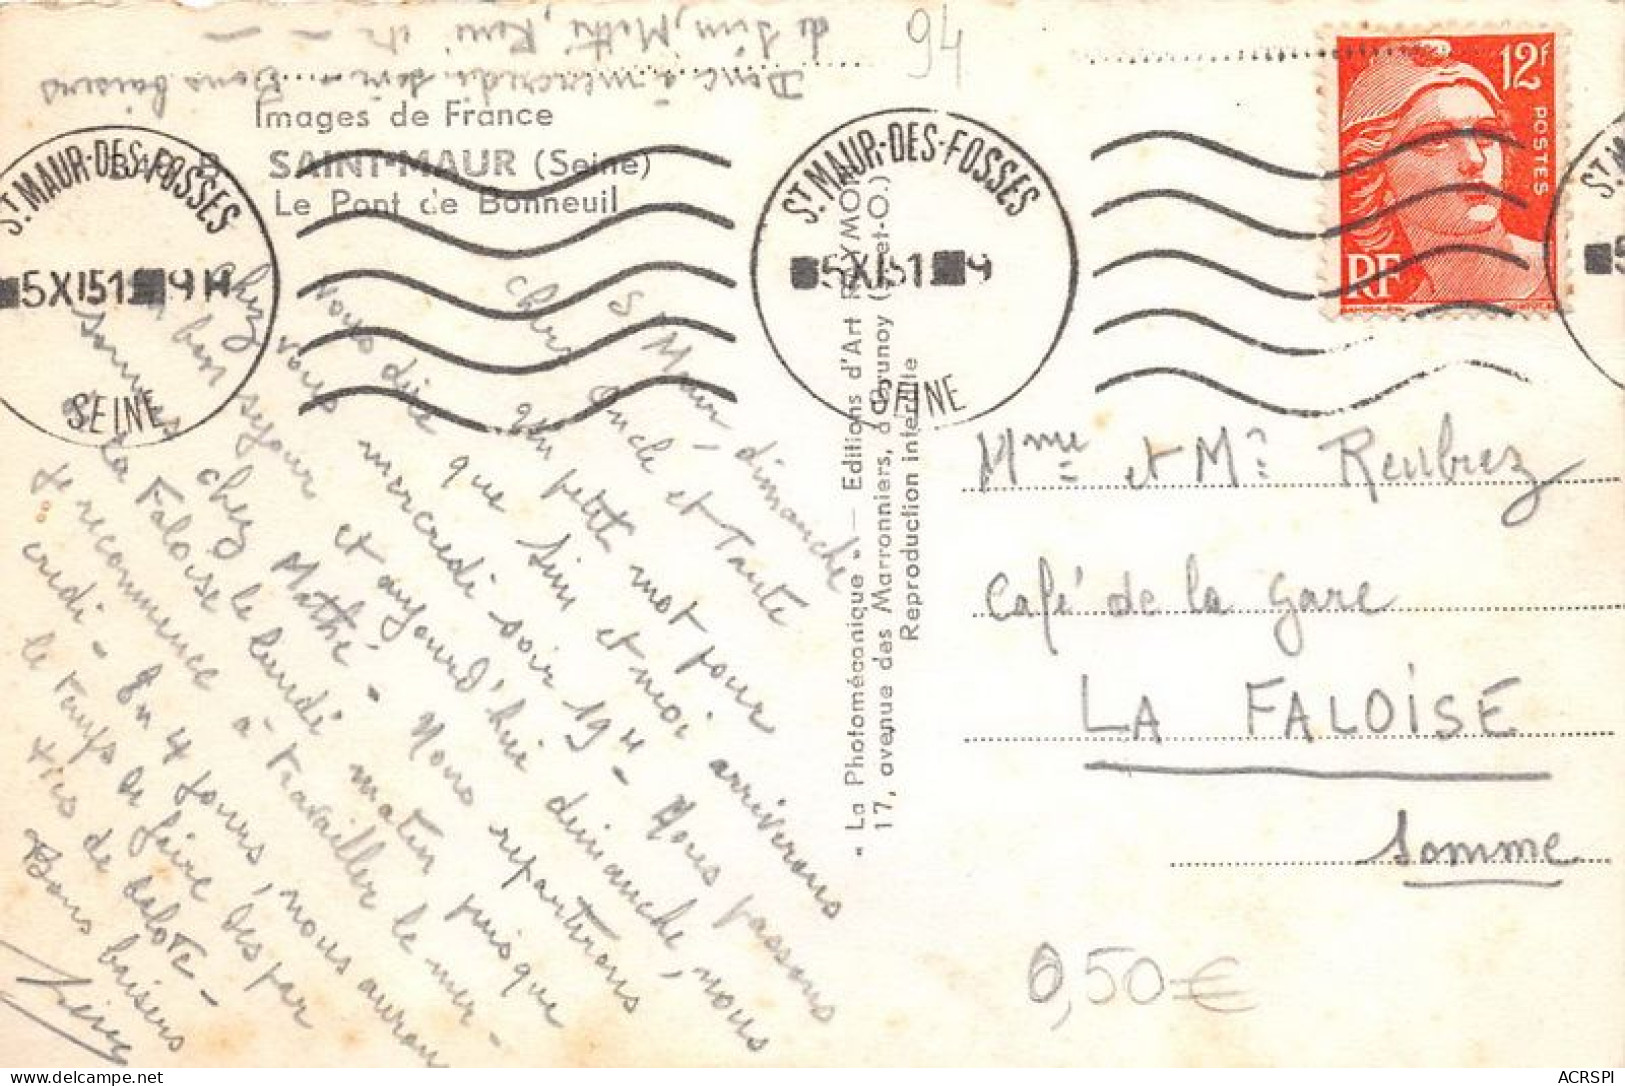 de Sim, Mathé, René etc -
Donc à mercredi soir - Bons baisers
94
Images de France
B
SAINT-MAUR (Seine)
Le Pont de Bonneuil
ST MAUR-DES-FOSSES
5 XI 51 9H
SEINE
ST MAUR-DES-FOSSES
5 XI 51 9
SEINE
12F
POSTES
RF
S Maur, dimanche
Chers Oncle et Tante
Un petit mot pour
vous dire que Sim et moi arriverons
chez vous mercredi soir 19H - Nous passons
un bon séjour et aujourd'hui dimanche, nous
sommes chez Mathé - Nous repartirons
à La Faloise le lundi matin puisque
je recommence à travailler le mer-
credi - En 4 jours, nous aurons
le temps de faire des par
ties de belote -
Bons baisers
" La Photomécanique " — Editions d'Art RAYMON
17, avenue des Marronniers, à Brunoy (S.-et-O.)
Reproduction interdite
Mme et Mr Reubrez
Café de la Gare
LA FALOISE
Somme
0,50 €
ACRSPI